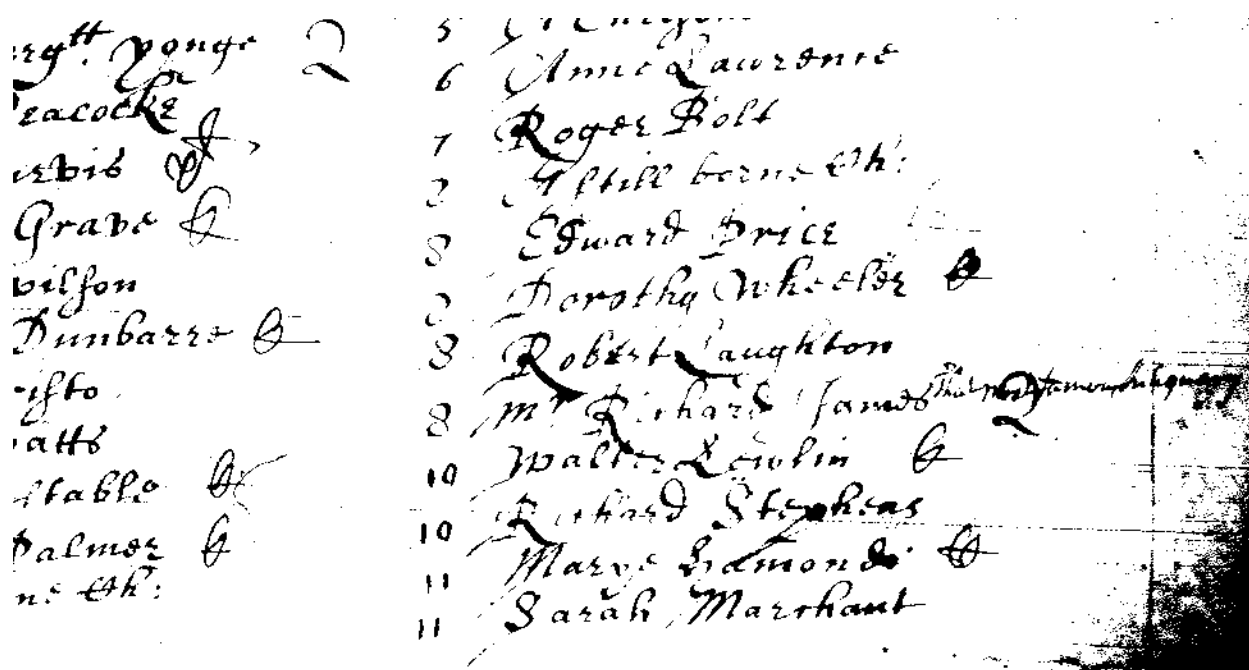 rgtt. yonge
Peacocke
rvis
Grave
wilson
Dunbarre
risto
atts
stable
Palmer
ne Ch:
5
6 Anne Lawrence
7 Roger Bolt
8 A still borne Ch:
8 Edward Price
8 Dorothy Wheeler
8 Robert Laughton
8 Mr Richard James that most famous Antiquary
10 Walter Lewlin
10 Richard Stephens
11 Marye Hamond
11 Sarah Marchant